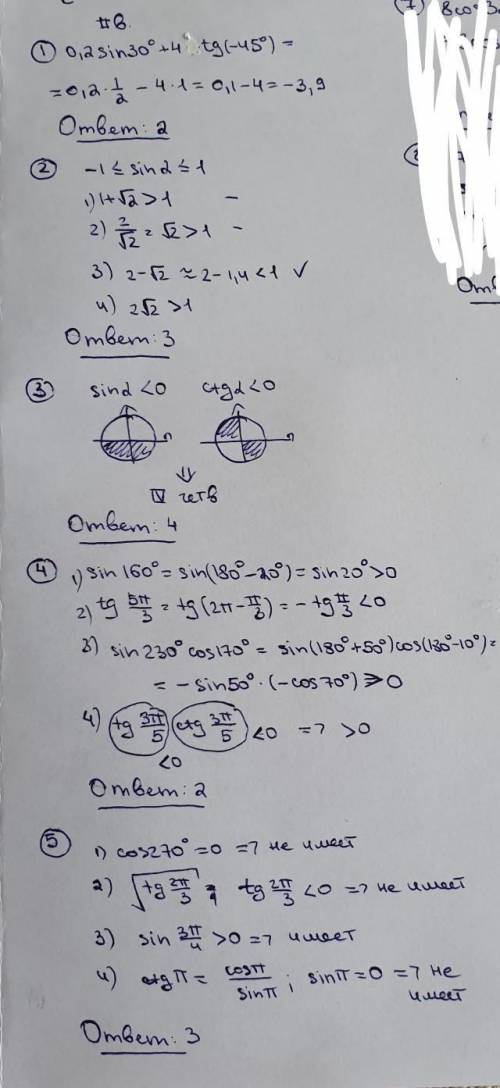 ① 0,2sin30° + 4 tg(-45°) =
= 0,2 · 1/2 - 4 · 1 = 0,1 - 4 = -3,9
Ответ: 2
② -1 ≤ sin α ≤ 1
1) 1+√2 > 1 -
2) 2/√2 = √2 > 1 -
3) 2-√2 ≈ 2-1,4 < 1 ✓
4) 2√2 > 1
Ответ: 3
③ sin α < 0 ctg α < 0
⇓
IV четв
Ответ: 4
④ 1) sin 160° = sin(180°-20°) = sin 20° > 0
2) tg 5π/3 = tg(2π - π/3) = - tg π/3 < 0
3) sin 230° cos 170° = sin(180°+50°)cos(180°-10°) =
= - sin 50° · (-cos 70°) > 0
4) tg 3π/5 ctg 3π/5 < 0 => > 0
< 0
Ответ: 2
⑤ 1) cos 270° = 0 => не имеет
2) √tg 2π/3 ; tg 2π/3 < 0 => не имеет
3) sin 3π/4 > 0 => имеет
4) ctg π = cos π / sin π ; sin π = 0 => не
имеет
Ответ: 3
⑦ 8cos3